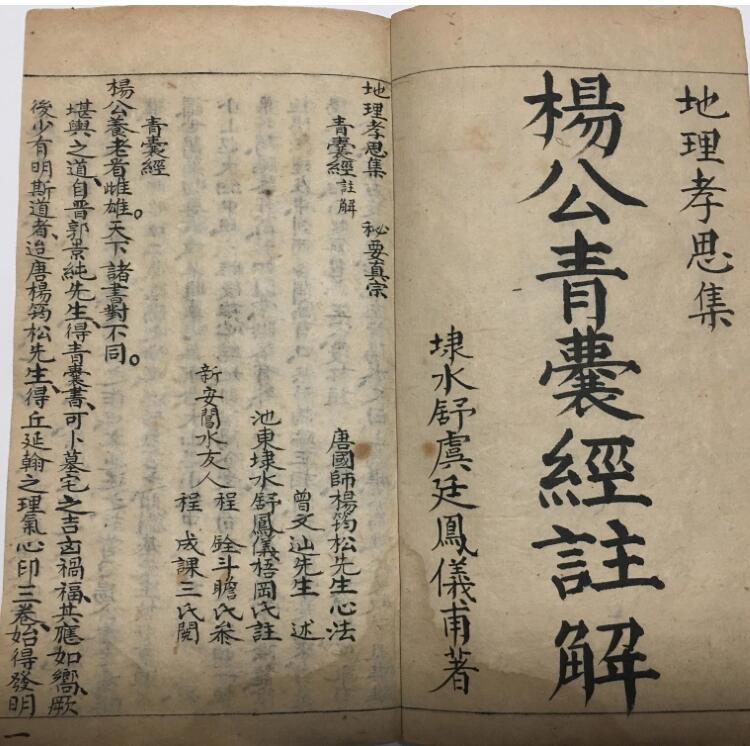 地理孝思集
楊公青囊經註解
埭水舒虞廷鳳儀甫著
地理孝思集 秘要真宗
青囊經註解
唐國師楊筠松先生心法
曾文辿先生 述
池東埭水舒鳳儀梧岡氏註
新安閶水友人 程 銓斗瞻氏叅
程 成課三氏閱
青囊經
楊公養老看雌雄。天下諸書對不同。
堪輿之道、自晋郭景純先生、得青囊書、可卜墓宅之吉凶禍福、其應如嚮、厥
後少有明斯道者、迨唐楊筠松先生、得丘延翰之理氣心印三卷、始得發明
一